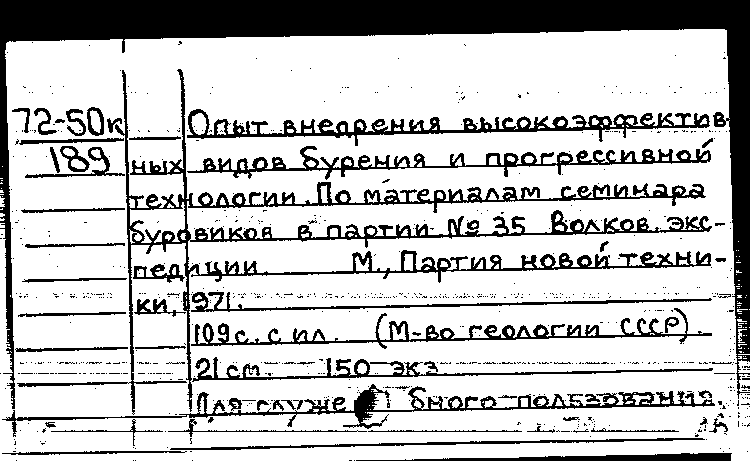 72-50к Опыт внедрения высокоэффектив-
189 ных видов бурения и прогрессивной
технологии. По материалам семинара
буровиков в партии № 35 Волков. экс-
педиции. М., Партия новой техни-
ки, 1971.
109 с. с ил. (М-во геологии СССР).
21 см. 150 экз
Для служебного пользования.